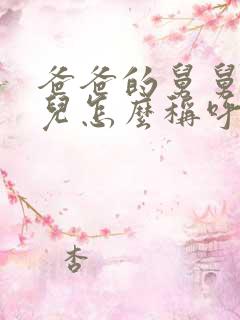 爸爸的舅舅
兒怎麼稱呼
杏